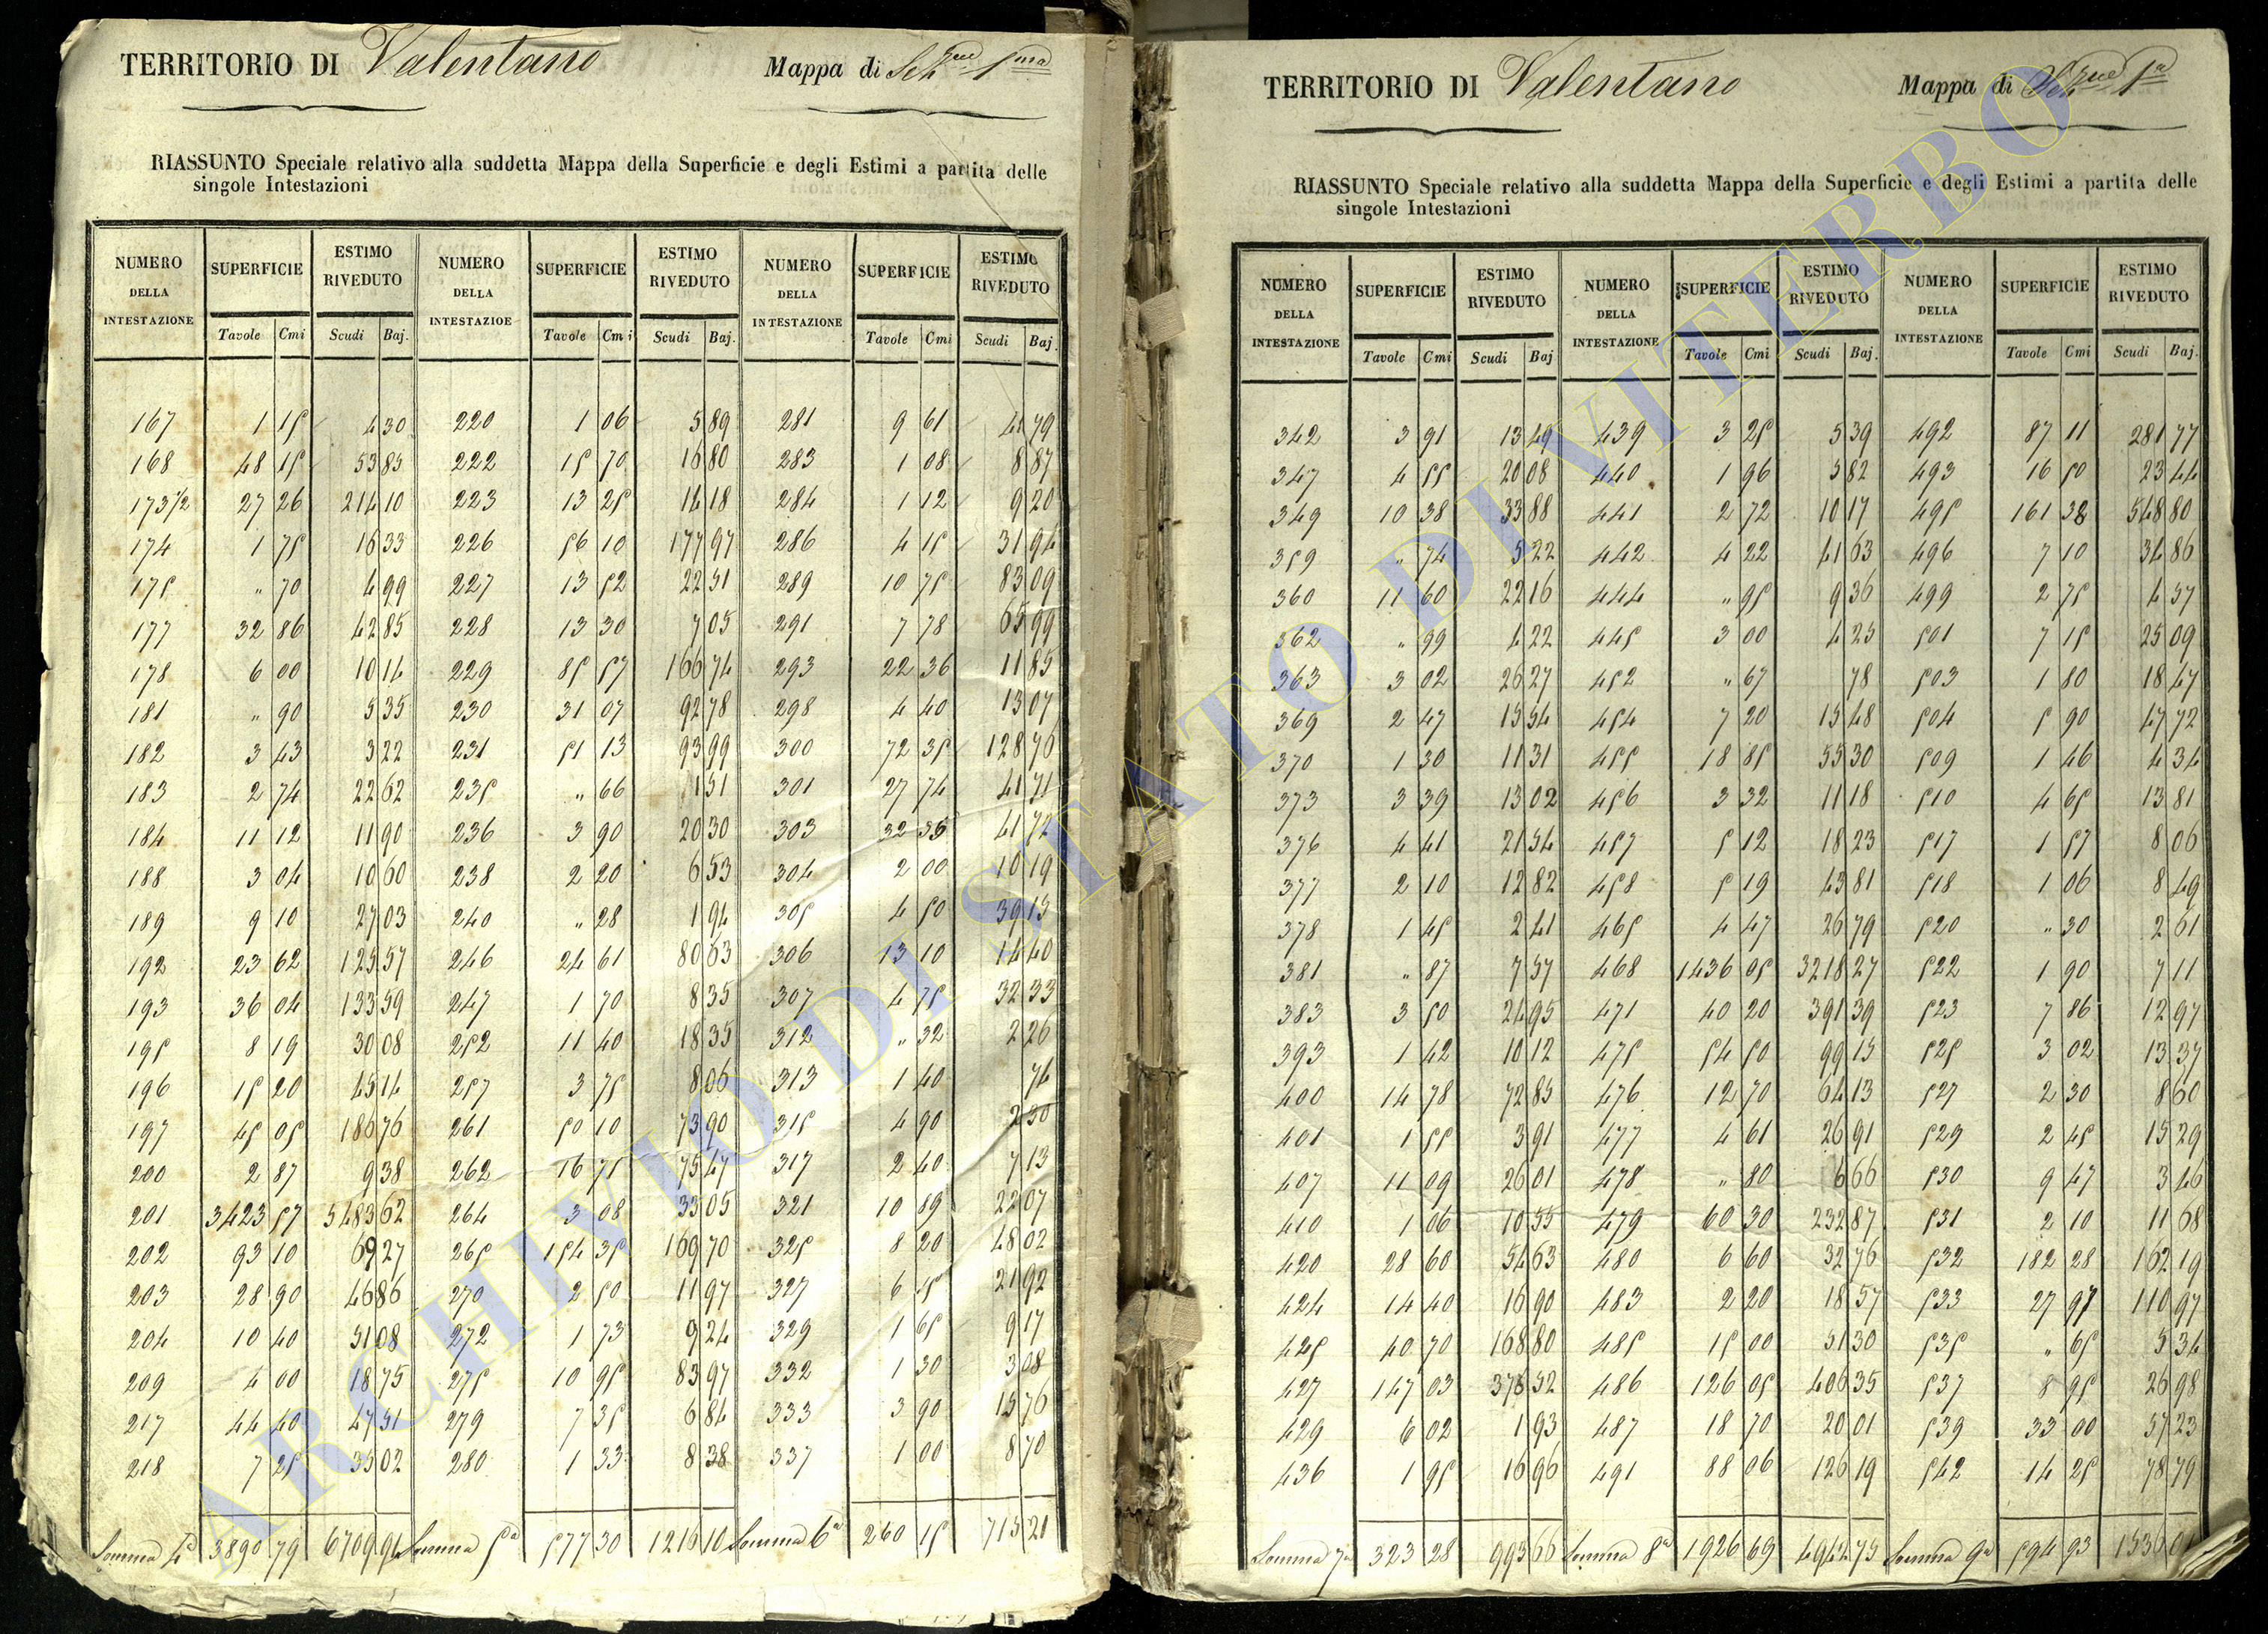 TERRITORIO DI Valentano Mappa di Sez.ne 1.ma
RIASSUNTO Speciale relativo alla suddetta Mappa della Superficie e degli Estimi a partita delle
singole Intestazioni
NUMERO DELLA INTESTAZIONE SUPERFICIE ESTIMO RIVEDUTO NUMERO DELLA INTESTAZIOE SUPERFICIE ESTIMO RIVEDUTO NUMERO DELLA INTESTAZIONE SUPERFICIE ESTIMO RIVEDUTO
Tavole Cmi Scudi Baj. Tavole Cmi Scudi Baj. Tavole Cmi Scudi Baj.
167 1 15 4 30 220 1 06 5 89 281 9 61 41 79
168 48 15 53 85 222 15 70 16 80 283 1 08 8 87
173 1/2 27 26 214 10 223 13 25 14 18 284 1 12 9 20
174 1 75 16 33 226 56 10 177 97 286 4 15 31 94
175 " 70 4 99 227 13 52 22 51 289 10 75 83 09
177 32 86 42 85 228 13 30 7 05 291 7 78 65 99
178 6 00 10 14 229 85 57 166 74 293 22 36 11 85
181 " 90 5 35 230 31 07 92 78 298 4 40 13 07
182 3 43 3 22 231 51 13 93 99 300 72 35 128 76
183 2 74 22 62 235 " 66 1 51 301 27 74 41 71
184 11 12 11 90 236 3 90 20 30 303 32 35 41 72
188 3 04 10 60 238 2 20 6 53 304 2 00 10 19
189 9 10 27 03 240 " 28 1 94 305 4 50 39 13
192 23 62 125 57 246 24 61 80 63 306 13 10 14 40
193 36 04 133 59 247 1 70 8 35 307 4 75 32 33
195 8 19 30 08 252 11 40 18 35 312 " 32 2 26
196 15 20 45 14 257 3 75 8 06 313 1 40 74
197 45 05 186 76 261 50 10 73 90 315 4 90 2 30
200 2 87 9 38 262 16 75 75 47 317 2 40 7 13
201 3423 57 5483 62 264 3 08 35 05 321 10 89 22 07
202 93 10 69 27 265 154 35 169 70 325 8 20 48 02
203 28 90 46 86 270 2 50 11 97 327 6 15 21 92
204 10 40 51 08 272 1 73 9 24 329 1 65 9 17
209 4 00 18 75 275 10 95 83 97 332 1 30 3 08
217 44 40 47 51 279 7 35 6 84 333 3 90 15 76
218 7 25 35 02 280 1 33 8 38 337 1 00 8 70
Somma 4a 3890 79 6709 94 Somma 5a 577 30 1216 10 Somma 6a 260 15 715 21
TERRITORIO DI Valentano Mappa di Sez.ne 1.a
RIASSUNTO Speciale relativo alla suddetta Mappa della Superficie e degli Estimi a partita delle
singole Intestazioni
NUMERO DELLA INTESTAZIONE SUPERFICIE ESTIMO RIVEDUTO NUMERO DELLA INTESTAZIONE SUPERFICIE ESTIMO RIVEDUTO NUMERO DELLA INTESTAZIONE SUPERFICIE ESTIMO RIVEDUTO
Tavole Cmi Scudi Baj Tavole Cmi Scudi Baj. Tavole Cmi Scudi Baj.
342 3 91 13 49 439 3 25 5 39 492 87 11 281 77
347 4 55 20 08 440 1 96 5 82 493 16 50 23 44
349 10 38 33 88 441 2 72 10 17 495 161 38 548 80
359 " 74 5 22 442 4 22 41 63 496 7 10 34 86
360 11 60 22 16 444 " 95 9 36 499 2 75 4 57
362 " 99 4 22 445 3 00 4 25 501 7 15 25 09
363 3 02 26 27 452 " 67 78 503 1 80 18 47
369 2 47 15 54 454 7 20 15 48 504 5 90 47 72
370 1 30 11 31 455 18 85 55 30 509 1 46 4 34
373 3 39 13 02 456 3 32 11 18 510 4 65 13 81
376 4 41 21 54 457 5 12 18 23 517 1 57 8 06
377 2 10 12 82 458 5 19 43 81 518 1 06 8 49
378 1 45 2 41 465 4 47 26 79 520 " 30 2 61
381 " 87 7 57 468 1436 05 3218 27 522 1 90 7 11
383 3 50 24 95 471 40 20 391 39 523 7 86 12 97
393 1 42 10 12 475 54 50 99 15 525 3 02 13 37
400 14 78 72 85 476 12 70 64 13 527 2 30 8 60
401 1 55 3 91 477 4 61 26 91 529 2 45 15 29
407 11 09 26 01 478 " 80 6 66 530 9 47 3 46
410 1 06 10 55 479 60 30 232 87 531 2 10 11 68
420 28 60 54 63 480 6 60 32 76 532 182 28 162 19
424 14 40 16 90 483 2 20 18 57 533 27 97 110 97
425 40 70 168 80 485 15 00 51 30 535 " 65 5 34
427 147 03 376 52 486 126 05 406 35 537 8 95 26 98
429 6 02 1 93 487 18 70 20 01 539 33 00 57 23
436 1 95 16 96 491 88 06 126 19 542 14 25 78 79
Somma 7a 323 28 993 66 Somma 8a 1926 69 4942 75 Somma 9a 594 93 1536 01
ARCHIVIO DI STATO DI VITERBO